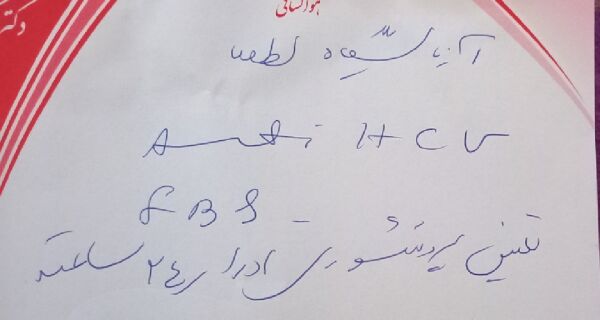 هوالشافی
دکتر
آزمایشگاه لطفا
Anti HCV
FBS -
تعیین پروتئینوری ادرار ۲۴ ساعته